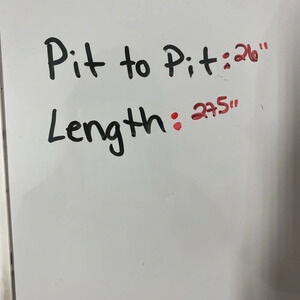 Pit to Pit: 26"
Length: 275"